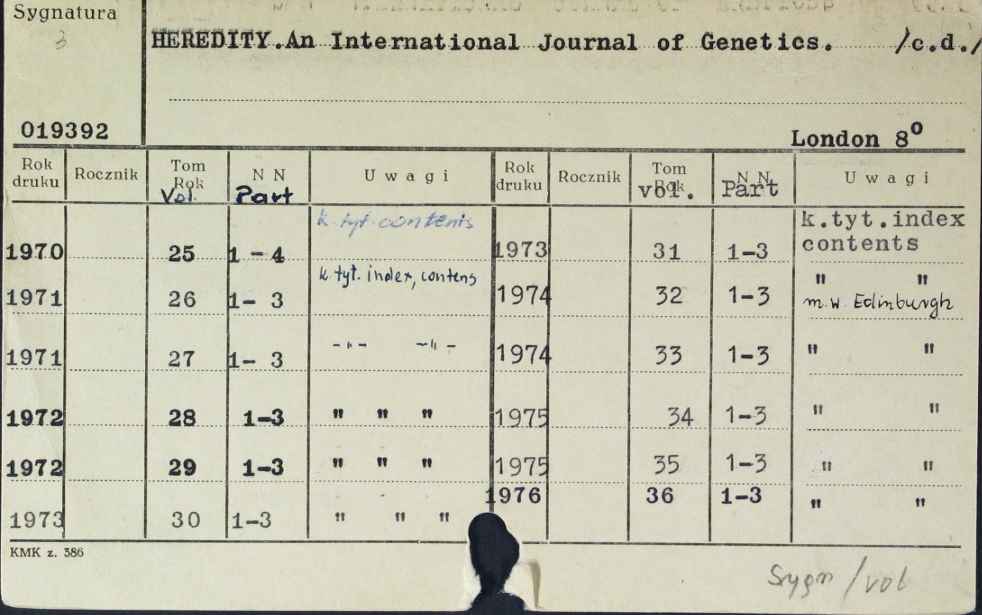 Sygnatura
HEREDITY.An International Journal of Genetics. /c.d./
019392
London 8º
Rok druku Rocznik Tom Rok Vol. N N Part U w a g i Rok druku Rocznik Tom Rok vol. N N Part U w a g i
1970 25 1 - 4 k. tyt. contents 1973 31 1-3 k.tyt.index contents
1971 26 1- 3 k. tyt. index, contens 1974 32 1-3 " " m. w. Edinburgh
1971 27 1- 3 -"- -"- 1974 33 1-3 " "
1972 28 1-3 " " " 1975 34 1-3 " "
1972 29 1-3 " " " 1975 35 1-3 " "
1973 30 1-3 " " " 1976 36 1-3 " "
KMK z. 386
Sygn / vol